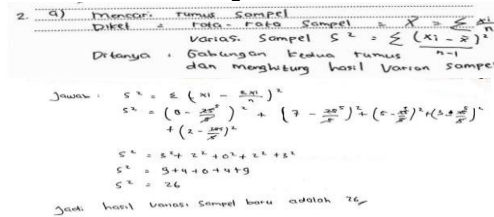 2. a) Mencari rumus sampel
Diket : rata-rata sampel = X̄ = Σ xi/n
Varias. Sampel S² = Σ (xi - x̄)² / n-1
Ditanya : Gabungan kedua rumus
dan menghitung hasil varian sampel
Jawab : S² = Σ (xi - Σxi/n)²
S² = (8 - 25/5)² + (7 - 25/5)² + (5 - 25/5)² + (3 - 25/5)²
+ (2 - 25/5)²
S² = 3² + 2² + 0² + 2² + 3²
S² = 9+4+0+4+9
S² = 26
Jadi hasil variasi sampel baru adalah 26